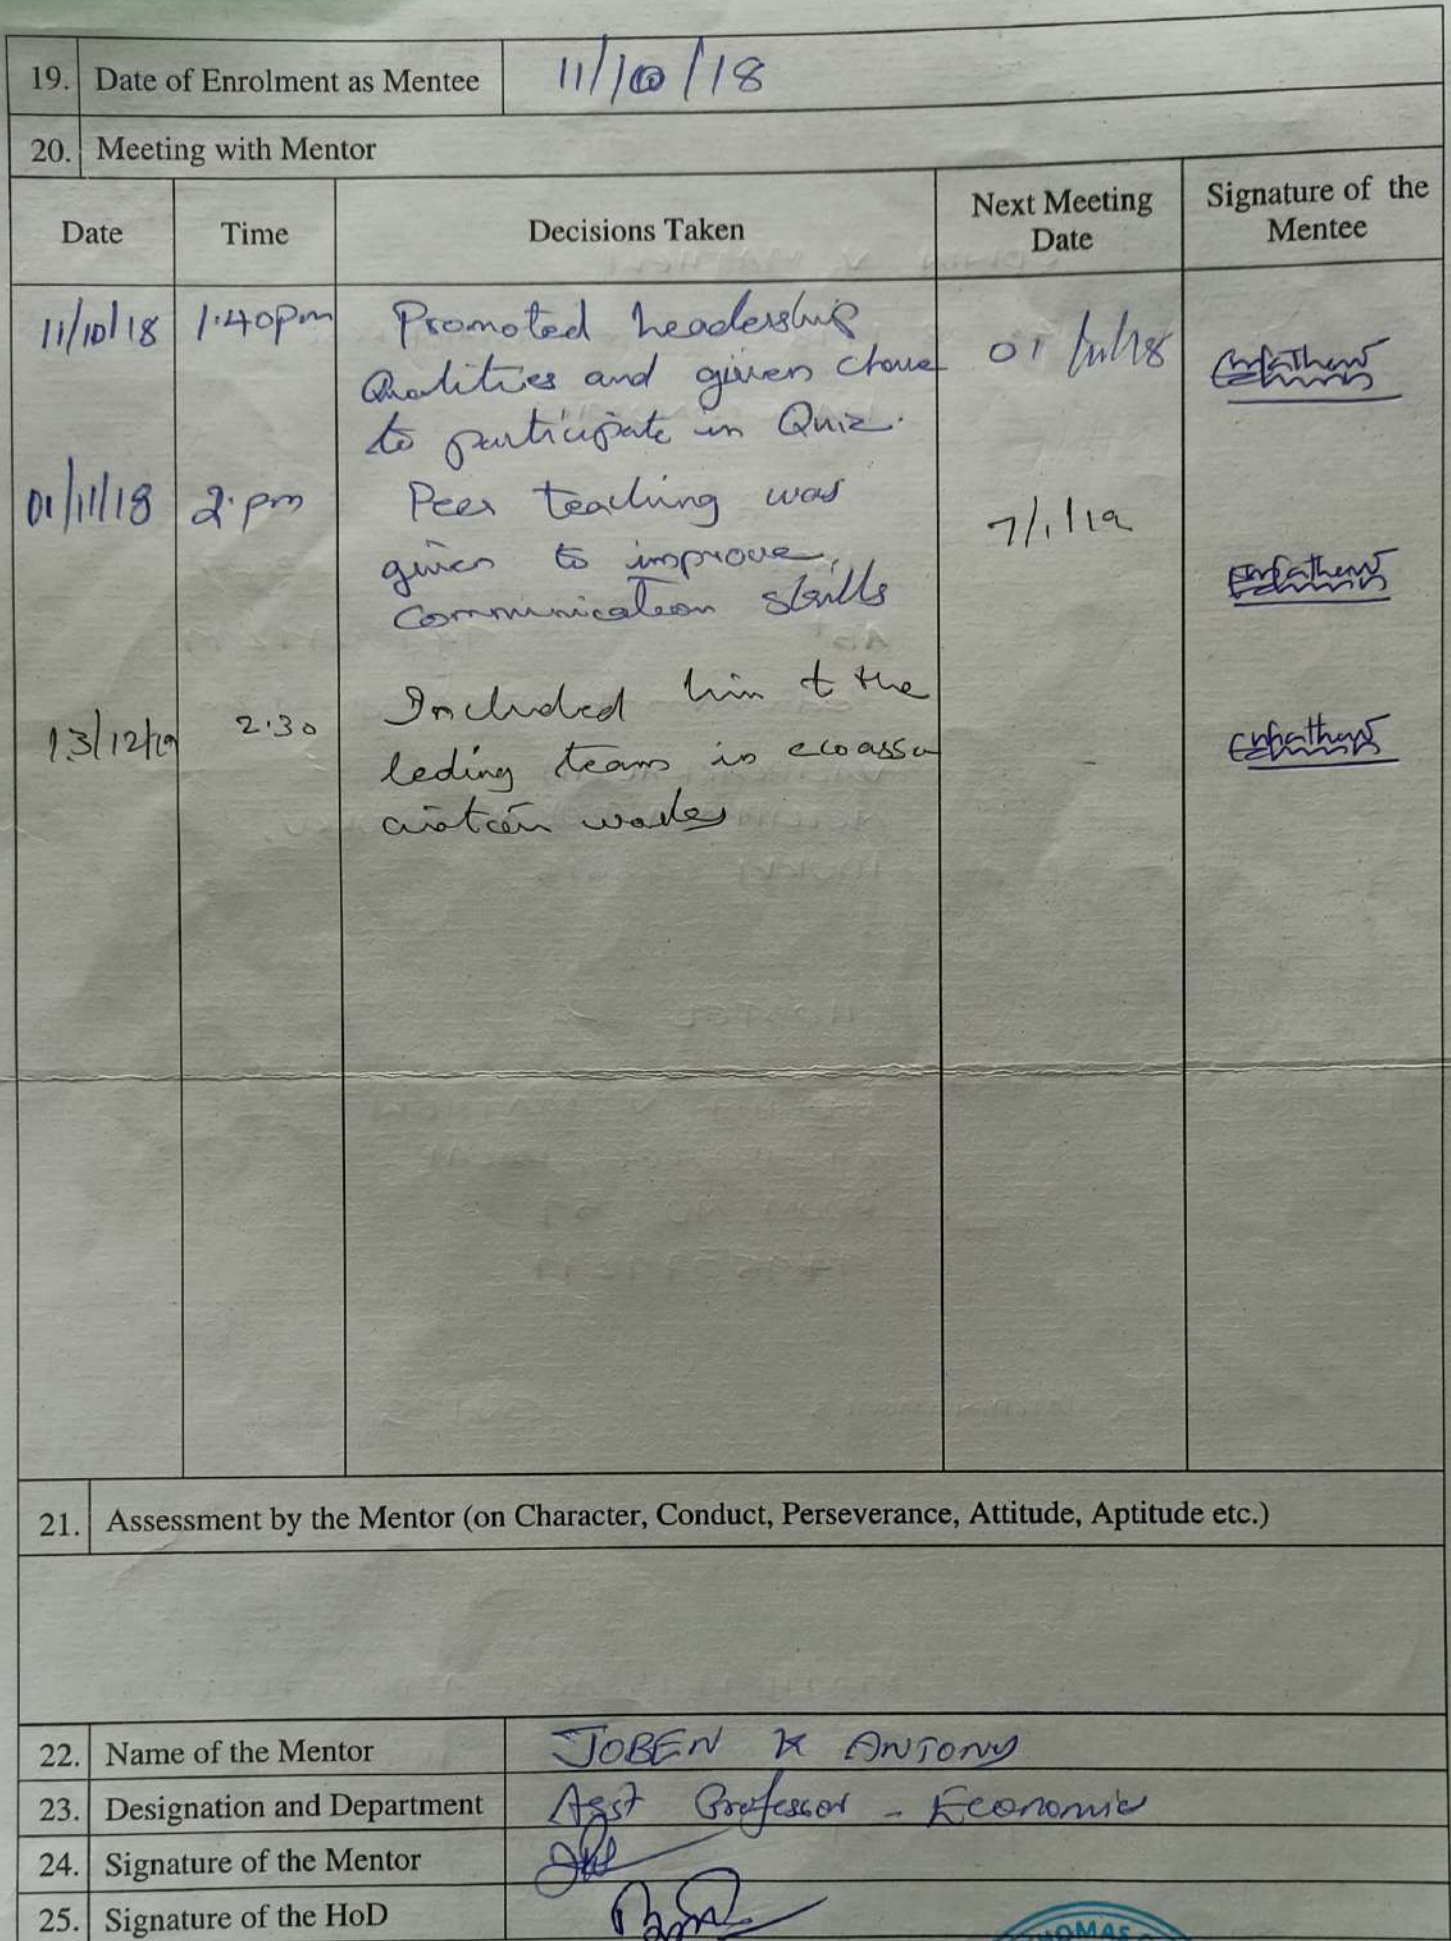 19. Date of Enrolment as Mentee 11/10/18
20. Meeting with Mentor
Date Time Decisions Taken Next Meeting Date Signature of the Mentee
11/10/18 1.40pm Promoted Leadership 01/11/18
Qualities and given
to participate in Quiz.
01/11/18 2.pm Peer teaching was 7/1/19
given to improve
communication skills
13/12/19 2.30 Included him t the -
leding team in
21. Assessment by the Mentor (on Character, Conduct, Perseverance, Attitude, Aptitude etc.)
22. Name of the Mentor JOBEN K ANTONY
23. Designation and Department Asst Professor - Economics
24. Signature of the Mentor
25. Signature of the HoD
HOMAS